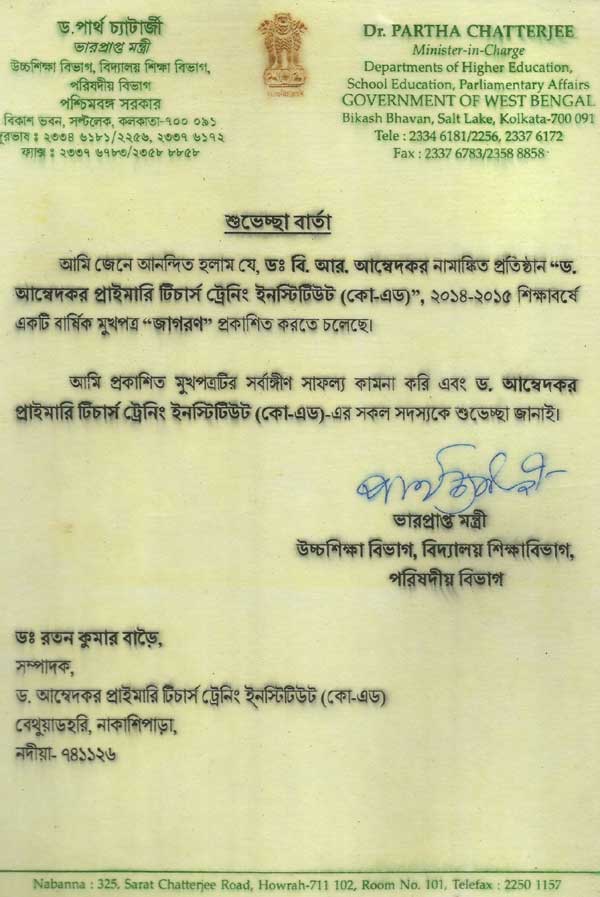 ড.পার্থ চ্যাটার্জী
ভারপ্রাপ্ত মন্ত্রী
উচ্চশিক্ষা বিভাগ, বিদ্যালয় শিক্ষা বিভাগ,
পরিষদীয় বিভাগ
পশ্চিমবঙ্গ সরকার
বিকাশ ভবন, সল্টলেক, কলকাতা-৭০০ ০৯১
দূরভাষ : ২৩৩৪ ৬১৮১/২২৫৬, ২৩৩৭ ৬১৭২
ফ্যাক্স : ২৩৩৭ ৬৭৮৩/২৩৫৮ ৮৮৫৮
Dr. PARTHA CHATTERJEE
Minister-in-Charge
Departments of Higher Education,
School Education, Parliamentary Affairs
GOVERNMENT OF WEST BENGAL
Bikash Bhavan, Salt Lake, Kolkata-700 091
Tele : 2334 6181/2256, 2337 6172
Fax : 2337 6783/2358 8858
শুভেচ্ছা বার্তা
আমি জেনে আনন্দিত হলাম যে, ডঃ বি. আর. আম্বেদকর নামাঙ্কিত প্রতিষ্ঠান “ড.
আম্বেদকর প্রাইমারি টিচার্স ট্রেনিং ইনস্টিটিউট (কো-এড)”, ২০১৪-২০১৫ শিক্ষাবর্ষে
একটি বার্ষিক মুখপত্র “জাগরণ” প্রকাশিত করতে চলেছে।
আমি প্রকাশিত মুখপত্রটির সর্বাঙ্গীণ সাফল্য কামনা করি এবং ড. আম্বেদকর
প্রাইমারি টিচার্স ট্রেনিং ইনস্টিটিউট (কো-এড)-এর সকল সদস্যকে শুভেচ্ছা জানাই।
ভারপ্রাপ্ত মন্ত্রী
উচ্চশিক্ষা বিভাগ, বিদ্যালয় শিক্ষাবিভাগ,
পরিষদীয় বিভাগ
ডঃ রতন কুমার বাড়ৈ,
সম্পাদক,
ড. আম্বেদকর প্রাইমারি টিচার্স ট্রেনিং ইন্সটিটিউট (কো-এড)
বেথুয়াডহরি, নাকাশিপাড়া,
নদীয়া- ৭৪১১২৬
Nabanna : 325, Sarat Chatterjee Road, Howrah-711 102, Room No. 101, Telefax : 2250 1157